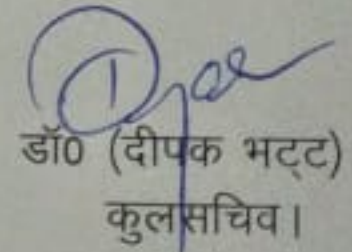 डॉ0 (दीपक भट्ट)
कुलसचिव।